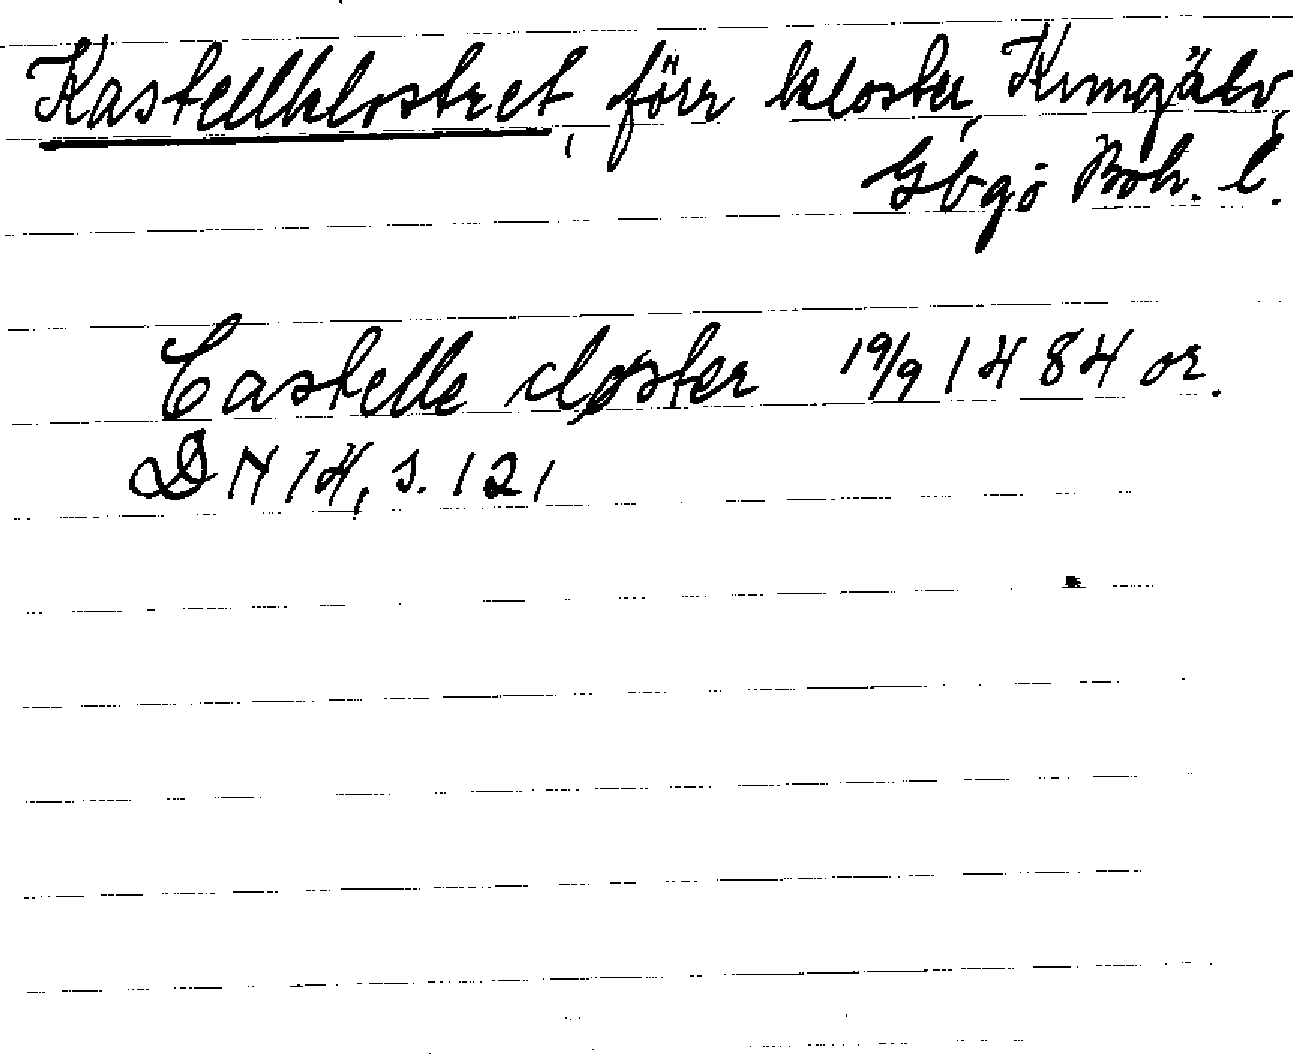 Kastellklostret, förr kloster, Kungälv,
Gbgö Boh. l.
Castelle closter 19/9 1484 or.
DN 14, s. 121